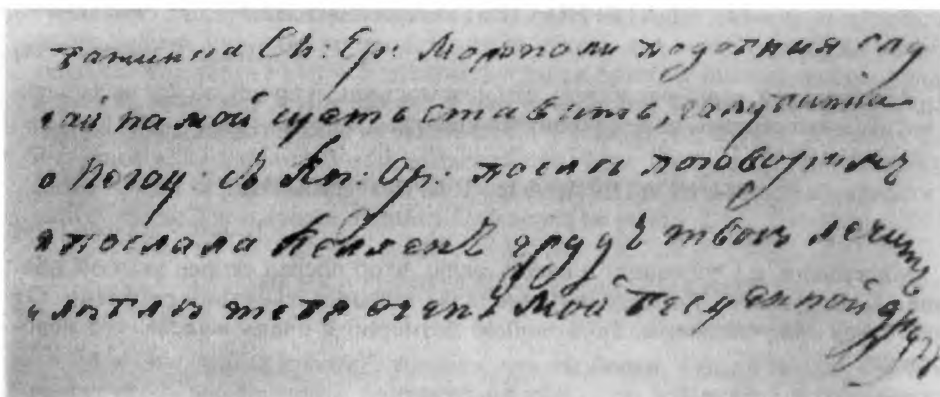 батинька Ch: Ep: Можноли подобныя слу
чай на мой щеть ставить, галубчикъ
о Негоц: съ Кн: Ор: послѣ поговоримъ
я послала Келхенъ грудь твою лечить
и люблю тебя очень мой бесценной другъ